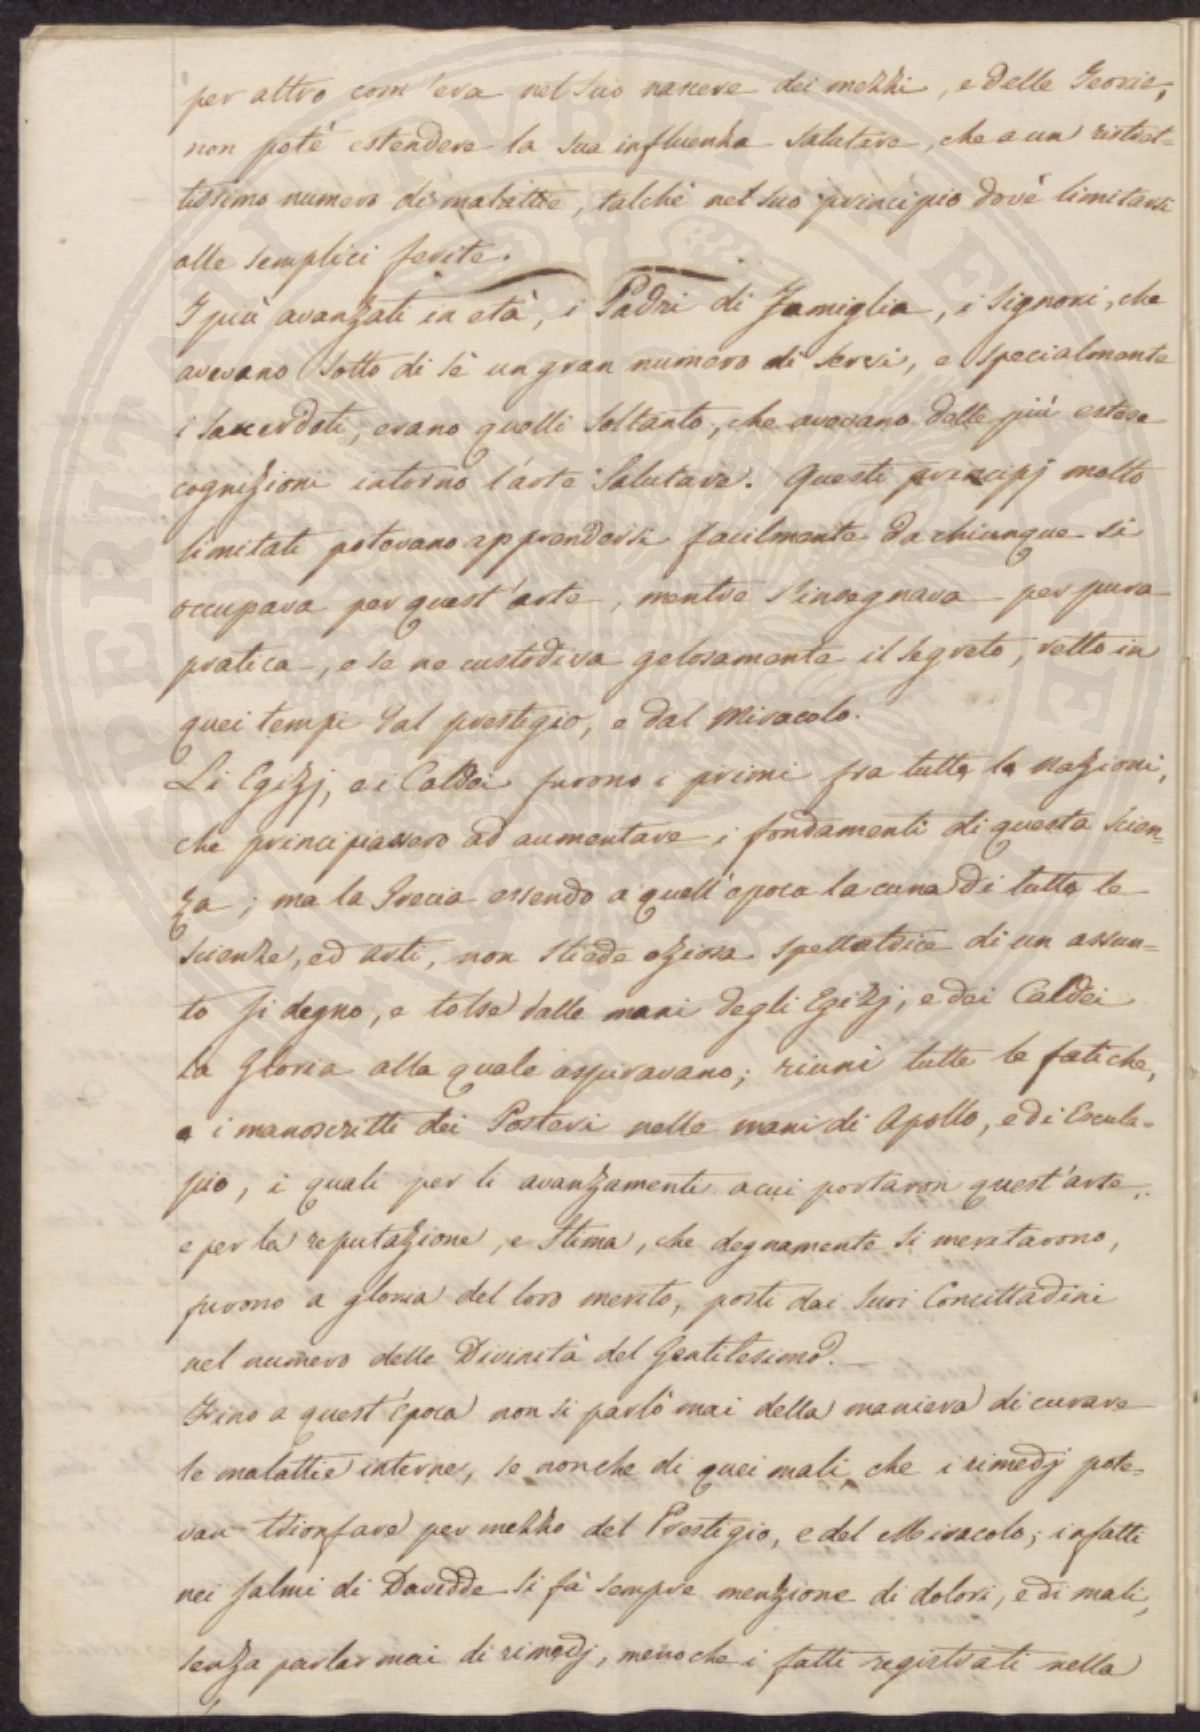 per altro com'era nel suo nascere dei mezzi, e delle Teorie,
non potè estendere la sua influenza salutare, che a un ristret=
tissimo numero di malattie, talchè nel suo principio dovè limitarsi
alle semplici ferite.
I più avanzati in età, i Padri di Famiglia, i Signori, che
avevano sotto di sè un gran numero di servi, e specialmente
i Sacerdoti, erano quelli soltanto, che avevano delle più estese
cognizioni intorno l'arte Salutare. Questi principj molto
limitati potevano apprendersi facilmente da chiunque si
occupava per quest'arte, mentre s'insegnava per pura
pratica, e se ne custodiva gelosamente il segreto, retto in
quei tempi dal prestigio, e dal Miracolo.
Li Egizj, e i Caldei furono i primi fra tutte le nazioni,
che principiassero ad aumentare i fondamenti di questa scien=
za; ma la Grecia essendo a quell'epoca la cuna di tutte le
scienze, ed arti, non stiede oziosa spettatrice di un assun=
to si degno, e tolse dalle mani degli Egizj, e dei Caldei
la Gloria alla quale aspiravano; riunì tutte le fatiche,
e i manoscritti dei Posteri nelle mani di Apollo, e di Escula=
pio, i quali per li avanzamenti a cui portaron quest'arte,
e per la reputazione, e Stima, che degnamente si meritarono,
furono a gloria del loro merito, posti dai suoi Concittadini
nel numero delle Divinità del Gentilesimo.
Fino a quest'epoca non si parlò mai della maniera di curare
le malattie interne, se non che di quei mali, che i rimedj pote=
van trionfare per mezzo del Prestigio, e del Miracolo; infatti
nei Salmi di Davidde si fà sempre menzione di dolori, e di mali,
senza parlar mai di rimedj, meno che i fatti registrati nella